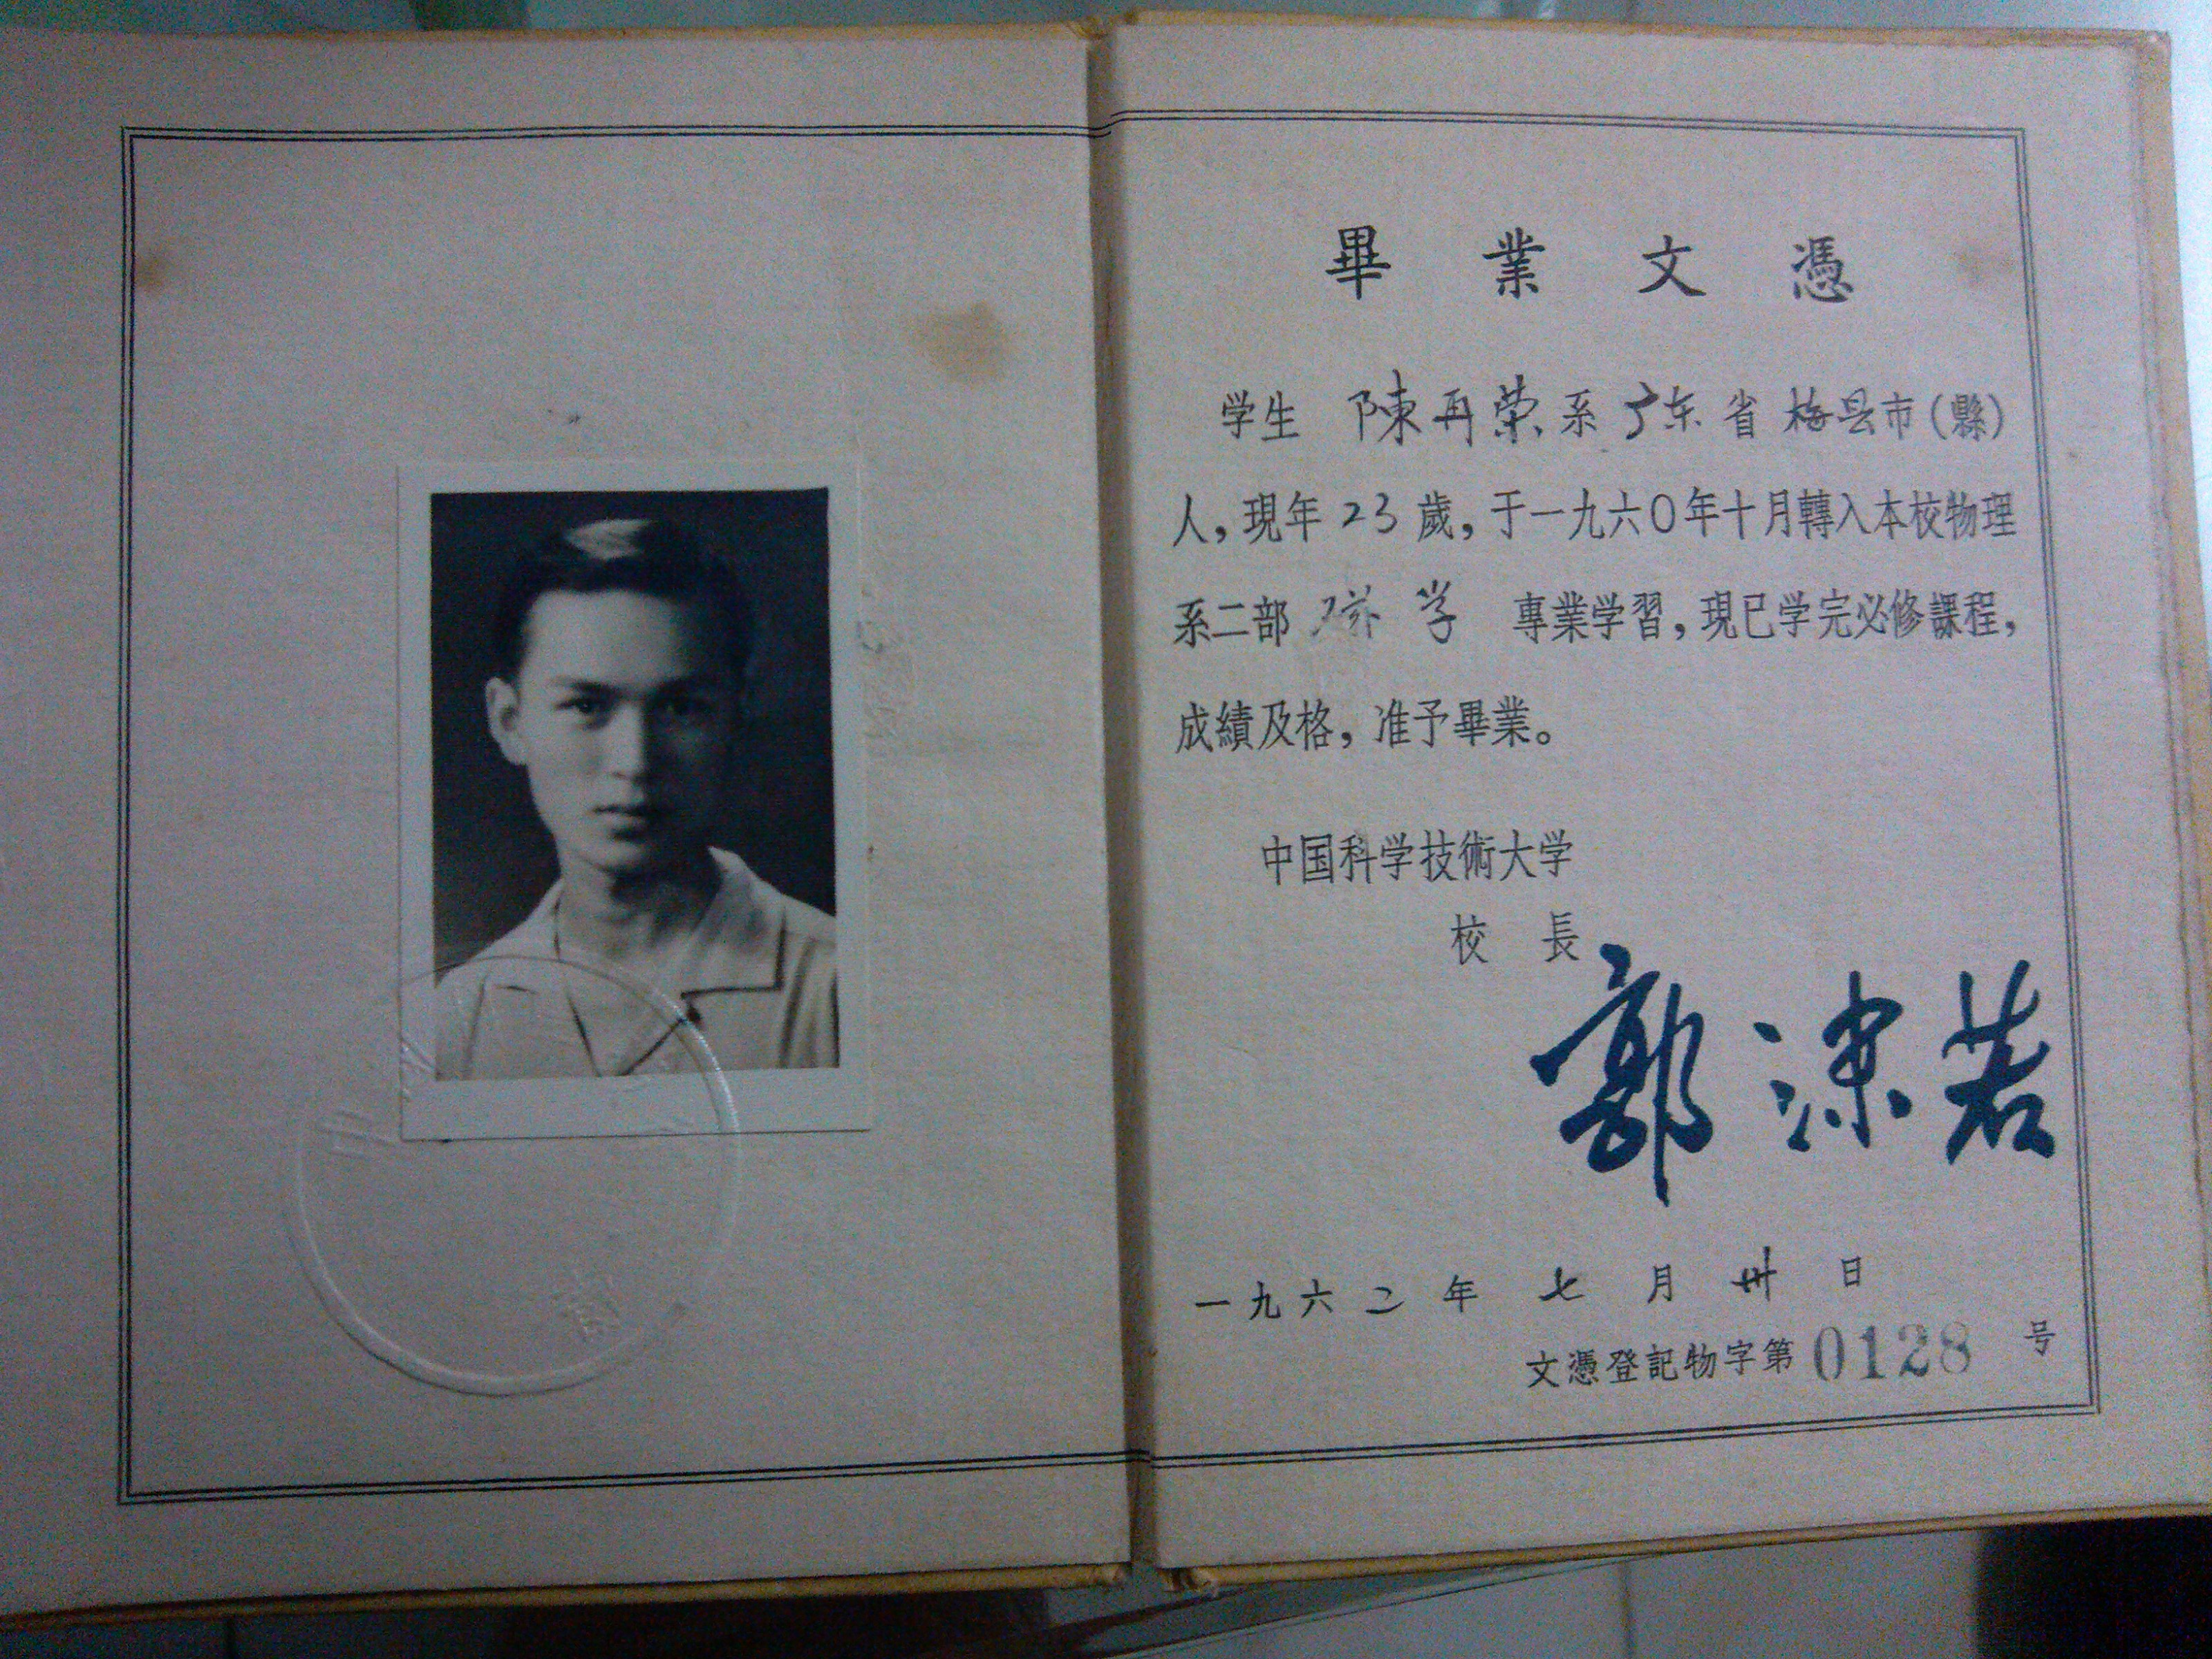 畢業文憑
学生 陳再荣系广东省梅县市(縣)
人,現年23歲,于一九六〇年十月轉入本校物理
系二部 学 專業学習,現已学完必修課程,
成績及格,准予畢業。
中国科学技術大学
校長
郭沫若
一九六二年七月卅日
文憑登記物字第0128号